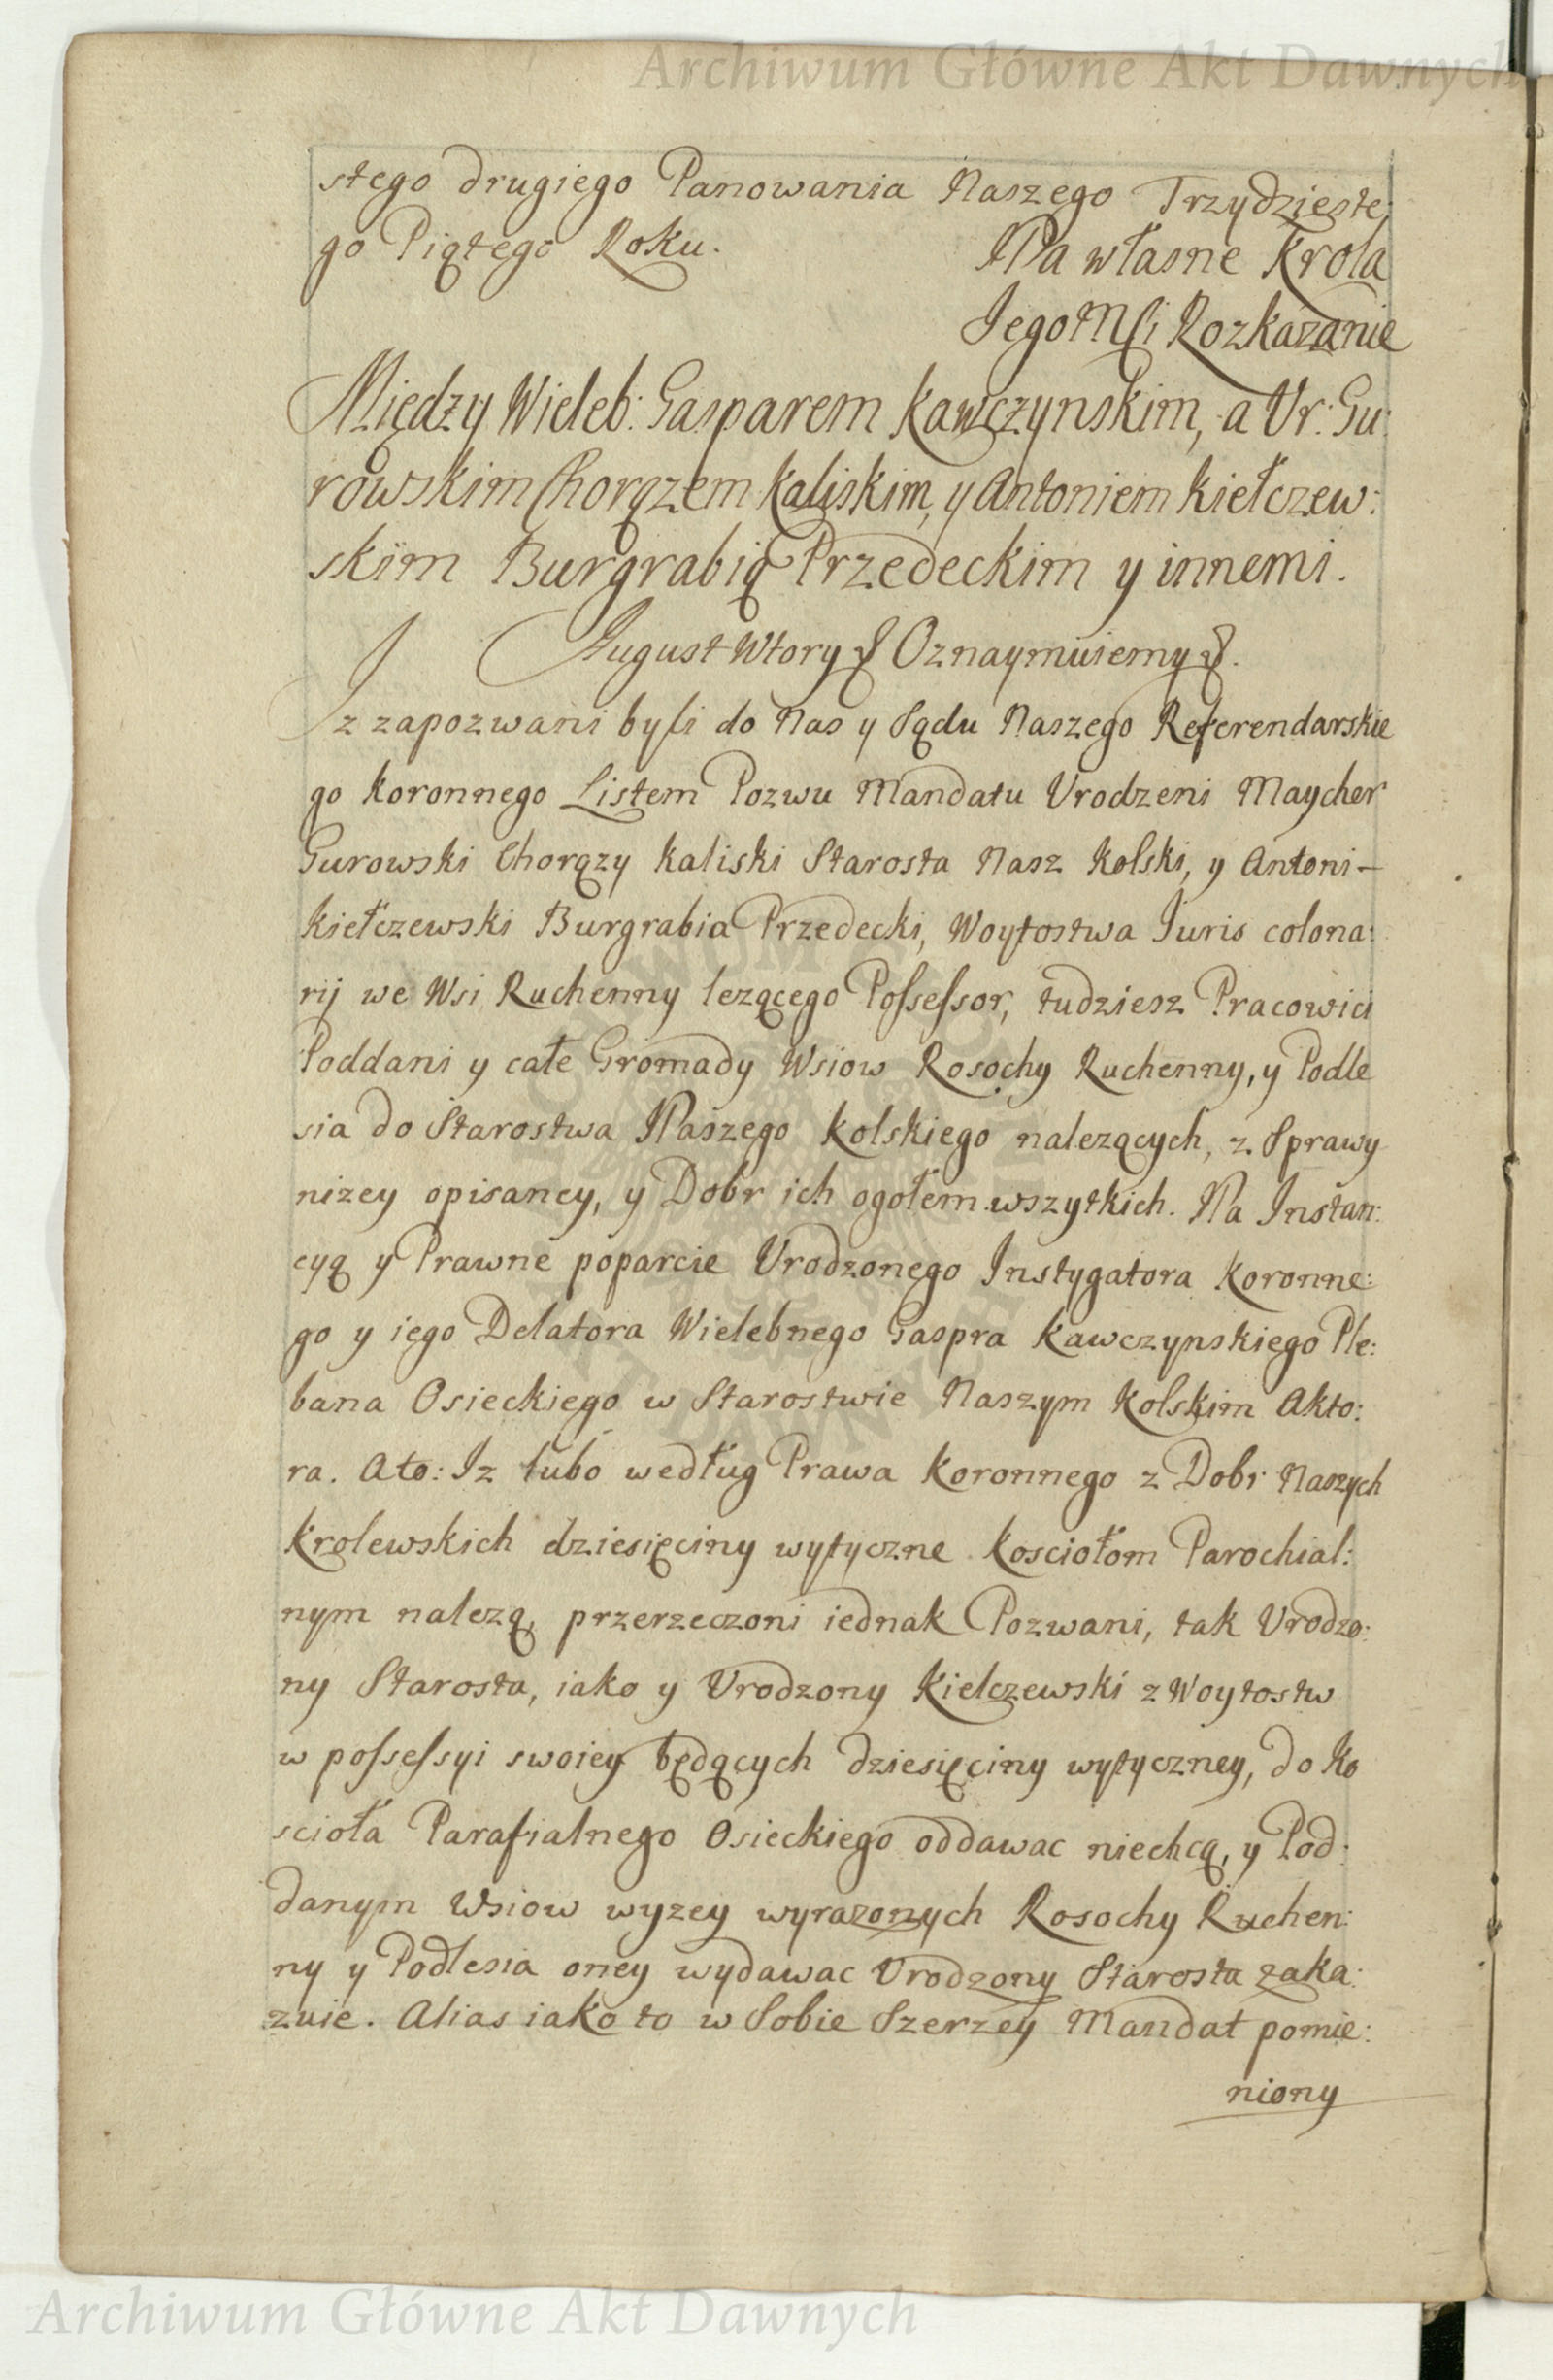 Archiwum Główne Akt Dawnych
stego drugiego Panowania Naszego Trzydzieste:
go Piątego Roku.
Na własne Krola
Jego Mści Rozkazanie
Między Wieleb: Gasparem Kawczynskim, a Ur: Gu:
rowskim Chorązem Kaliskim, y Antoniem Kiełczew:
skim Burgrabią Przedeckim y innemi.
August Wtory & Oznaymuiemy &.
Iz zapozwani byli do Nas y Sądu Naszego Referendarskie
go Koronnego Listem Pozwu Mandatu Urodzeni Maycher
Gurowski Chorązy Kaliski Starosta Nasz Kolski, y Antoni-
Kiełczewski Burgrabia Przedecki, Woytostwa Juris colona:
rij we Wsi Ruchenny lezącego Possessor, tudziesz Pracowici
Poddani y całe Gromady Wsiow Rosochy Ruchenny, y Podle
sia do Starostwa Naszego Kolskiego nalezących, z Sprawy
nizey opisaney, y Dobr ich ogołem wszytkich. Na Instan:
cyą y Prawne poparcie Urodzonego Instygatora Koronne:
go y iego Delatora Wielebnego Gaspra Kawczynskiego Ple:
bana Osieckiego w Starostwie Naszym Kolskim Akto:
ra. Ato: Iz lubo według Prawa Koronnego z Dobr Naszych
Krolewskich dziesięciny wytyczne Kosciołom Parochial:
nym nalezą, przerzeczoni iednak Pozwani, tak Urodzo:
ny Starosta, iako y Urodzony Kielczewski z Woytostw
w possessyi swoiey będących dziesięciny wytyczney, do Ko
scioła Parafialnego Osieckiego oddawac niechcą, y Pod:
danym Wsiow wyzey wyrazonych Rosochy Ruchen:
ny y Podlesia oney wydawac Urodzony Starosta zaka:
zuie. Alias iako to w Sobie Szerzey Mandat pomie:
niony
Archiwum Główne Akt Dawnych